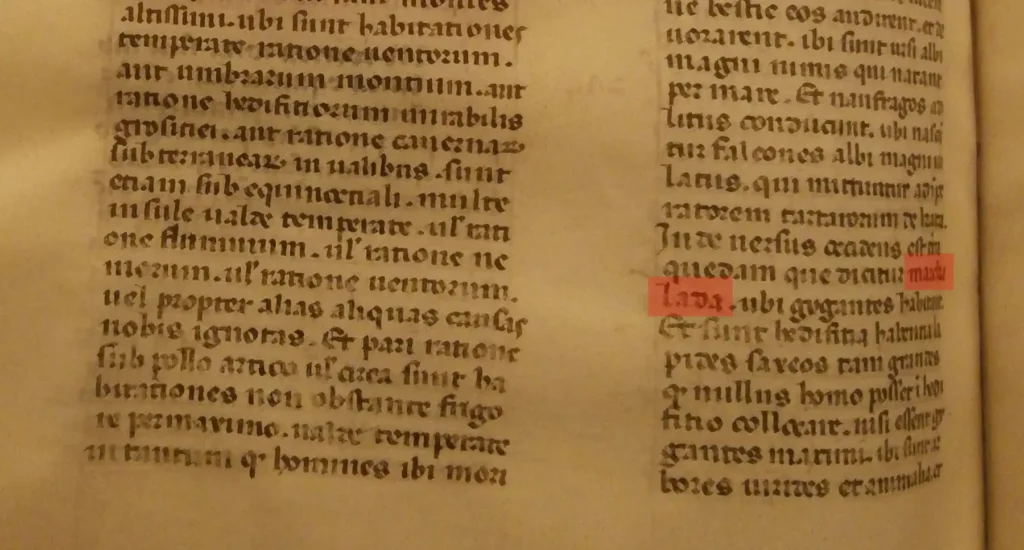 altissimi. ubi sunt habitationes
temperate ratione uentorum.
aut umbrarum montium. aut
ratione hedifitiorum mirabilis
grositiei. aut ratione cauernaꝝ
subterraneaꝝ in ualibus. sunt
etiam sub equinoctiali. multe
insule ualde temperate. ul' rati
one fluminum. ul' ratione ne
morum. ul' ratione uentorum.
uel propter alias aliquas causas
nobis ignotas. Et pari ratione
sub pollo artico ul' circa sunt ha
bitationes non obstante frigo
re permaximo. ualde temperate
in tantum qͥ homines ibi mori
ue bestie eos audirent. et de
uorarent. ibi sunt ursi albi
magni nimis qui natant
per mare. Et naufragos ad
litus conducunt. ubi nasci
tur falcones albi magnum
latus. qui mittuntur ad ipe
ratorem tartarorum de katai.
Inde uersus occidens est
quedam que dicitur marck
lada. ubi gygantes habitant
Et sunt hedifitia habentia la
pides saxeos tam grandes
qͥ nullus homo posset in hedi
fitio collocare. nisi essent gy
gantes maximi. ibi sunt ar
bores uirides et animalia. et